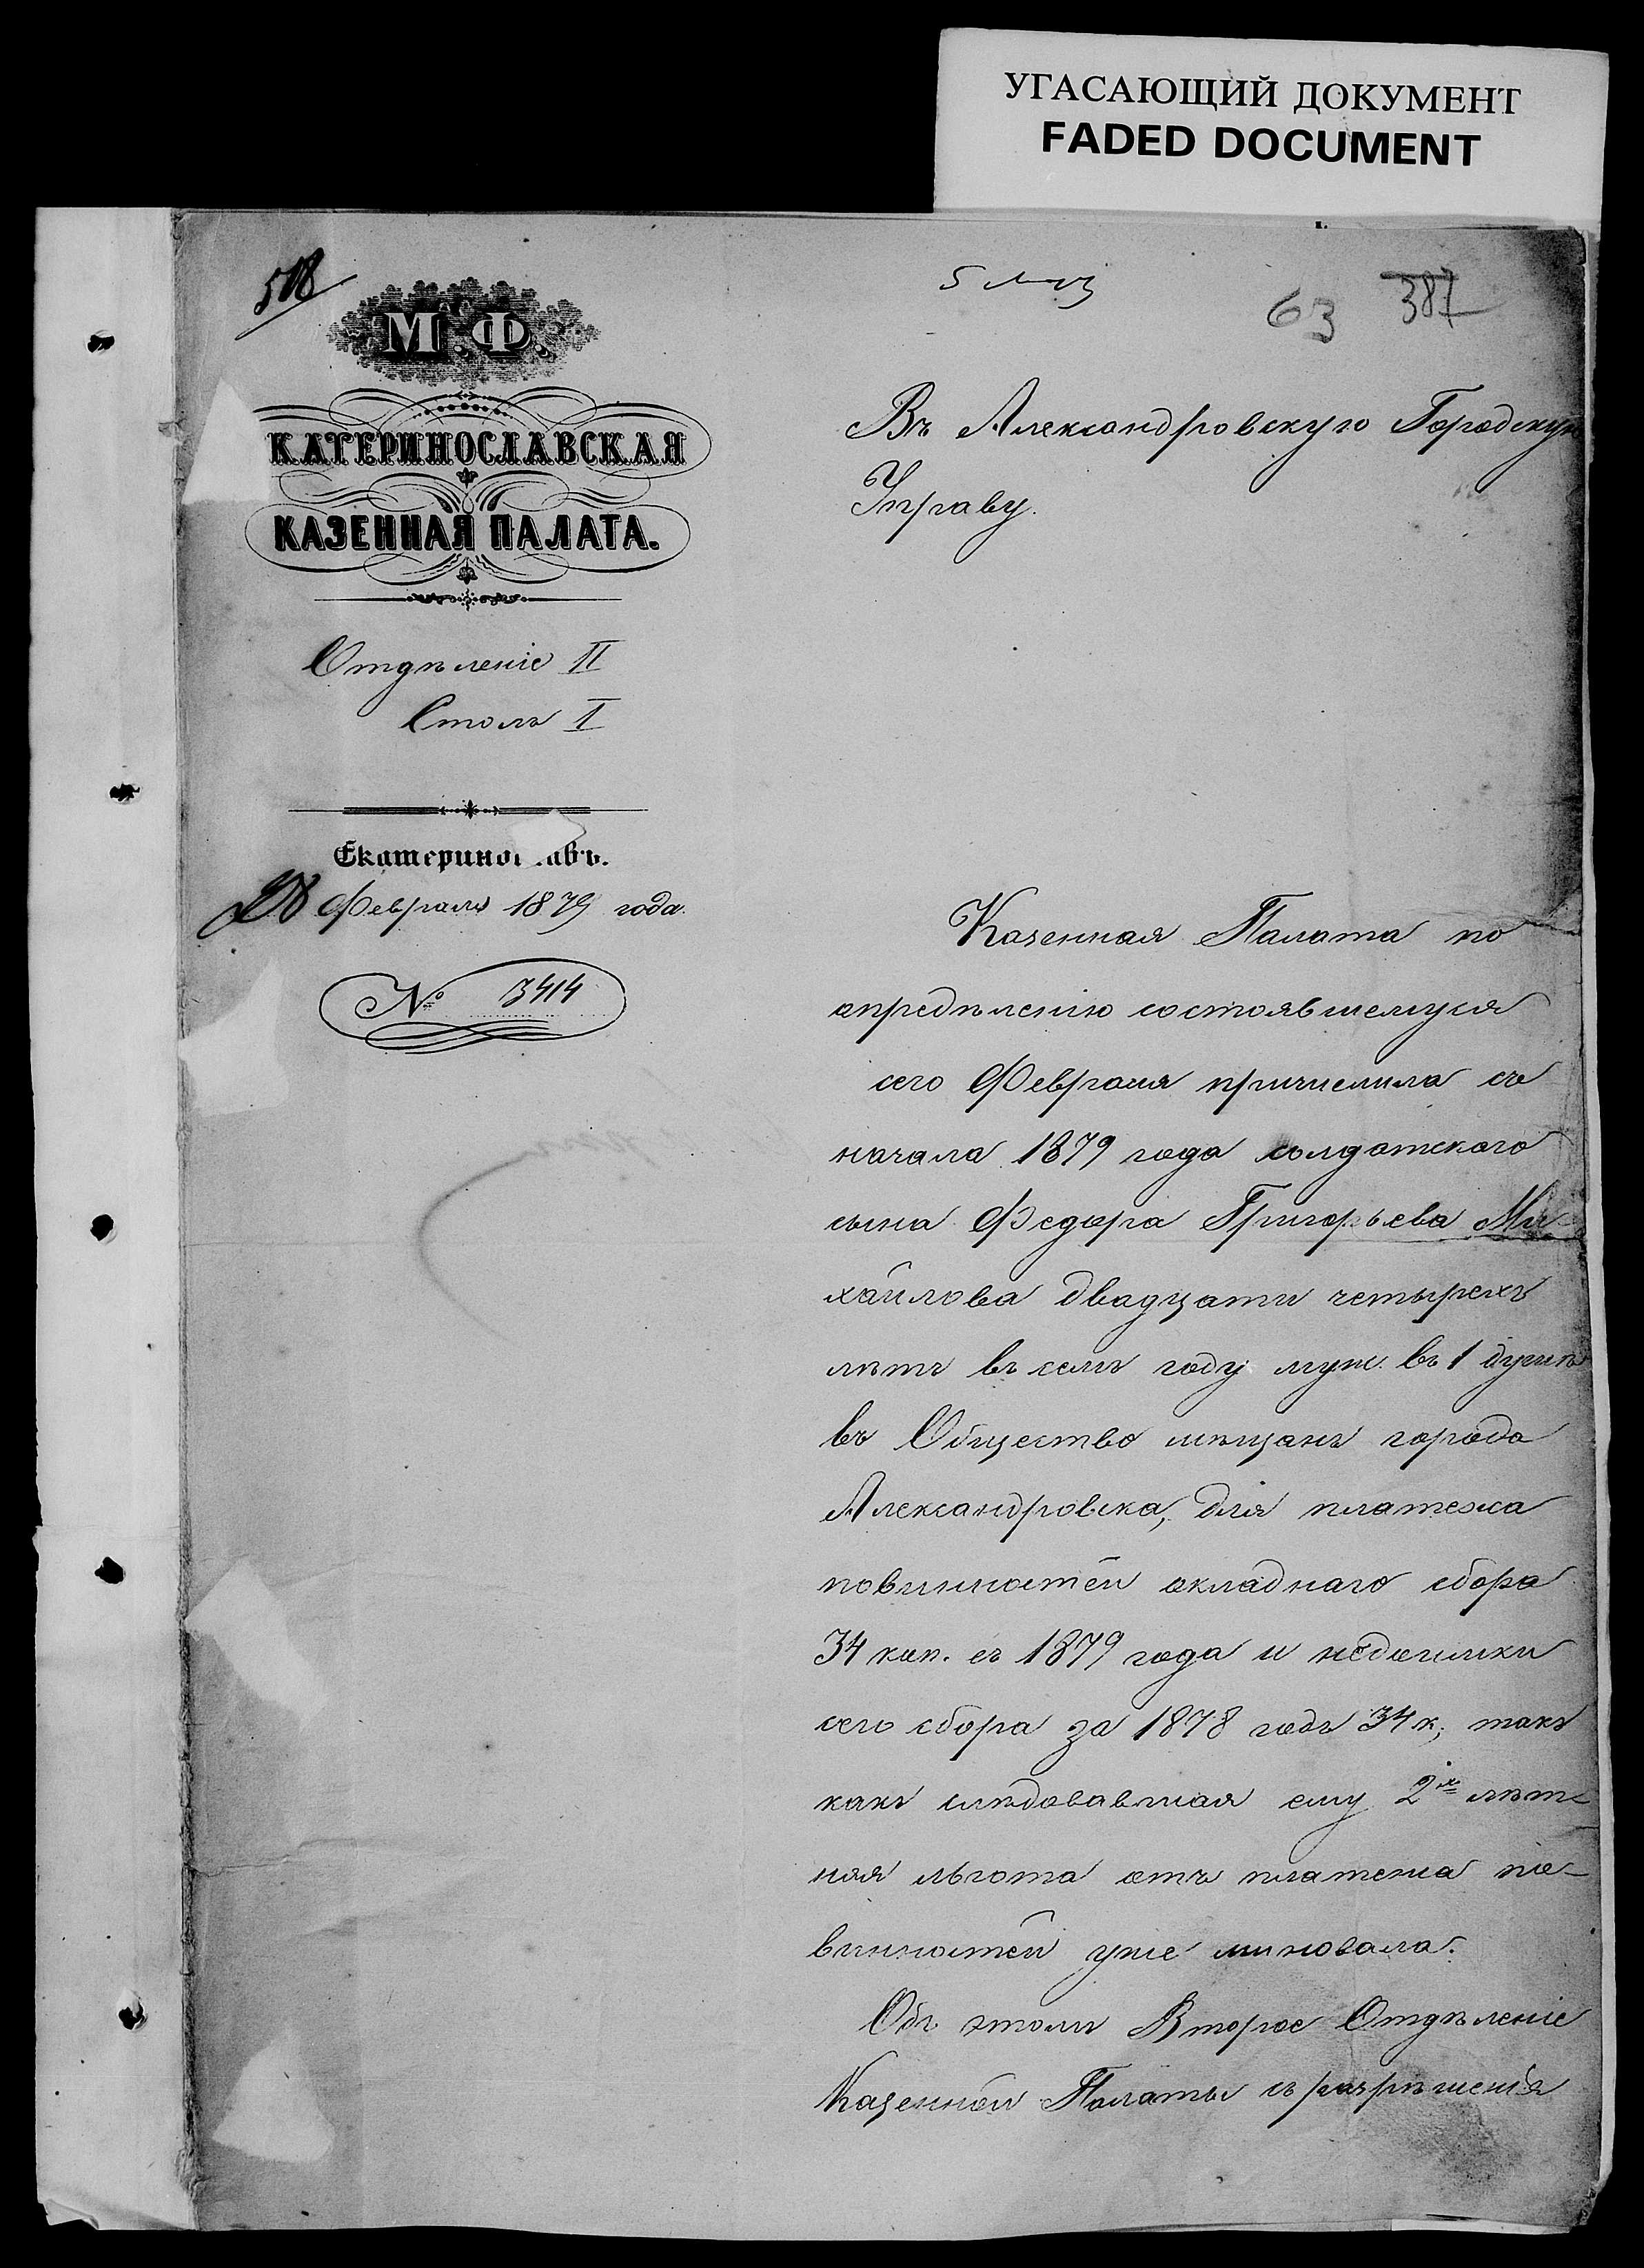 УГАСАЮЩИЙ ДОКУМЕНТ
FADED DOCUMENT
63 387
М.Ф.
КАТЕРИНОСЛАВСКАЯ
КАЗЕННАЯ ПАЛАТА.
Отдѣленіе II
Столъ I
Екатеринос авъ.
28 Февраля 1879 года.
№ 3414
Въ Александровскую Городскую
Управу.
Казенная Палата по
опредѣленію состоявшемуся
сего Февраля причислила съ
начала 1879 года солдатского
сына Федора Григорьева Ми-
хайлова двадцати четырехъ
лѣтъ въ семъ году муж. въ 1 душѣ
въ Общество мѣщанъ города
Александровска, для платежа
повинностей окладнаго сбора
34 коп. съ 1879 года и недоимки
сего сбора за 1878 годъ 34 к., такъ
какъ слѣдовавшая ему 2х лѣт-
няя льгота отъ платежа по-
винностей уже миновала.
Объ этомъ Второе Отдѣленіе
Казенной Палаты съ разрѣшенія